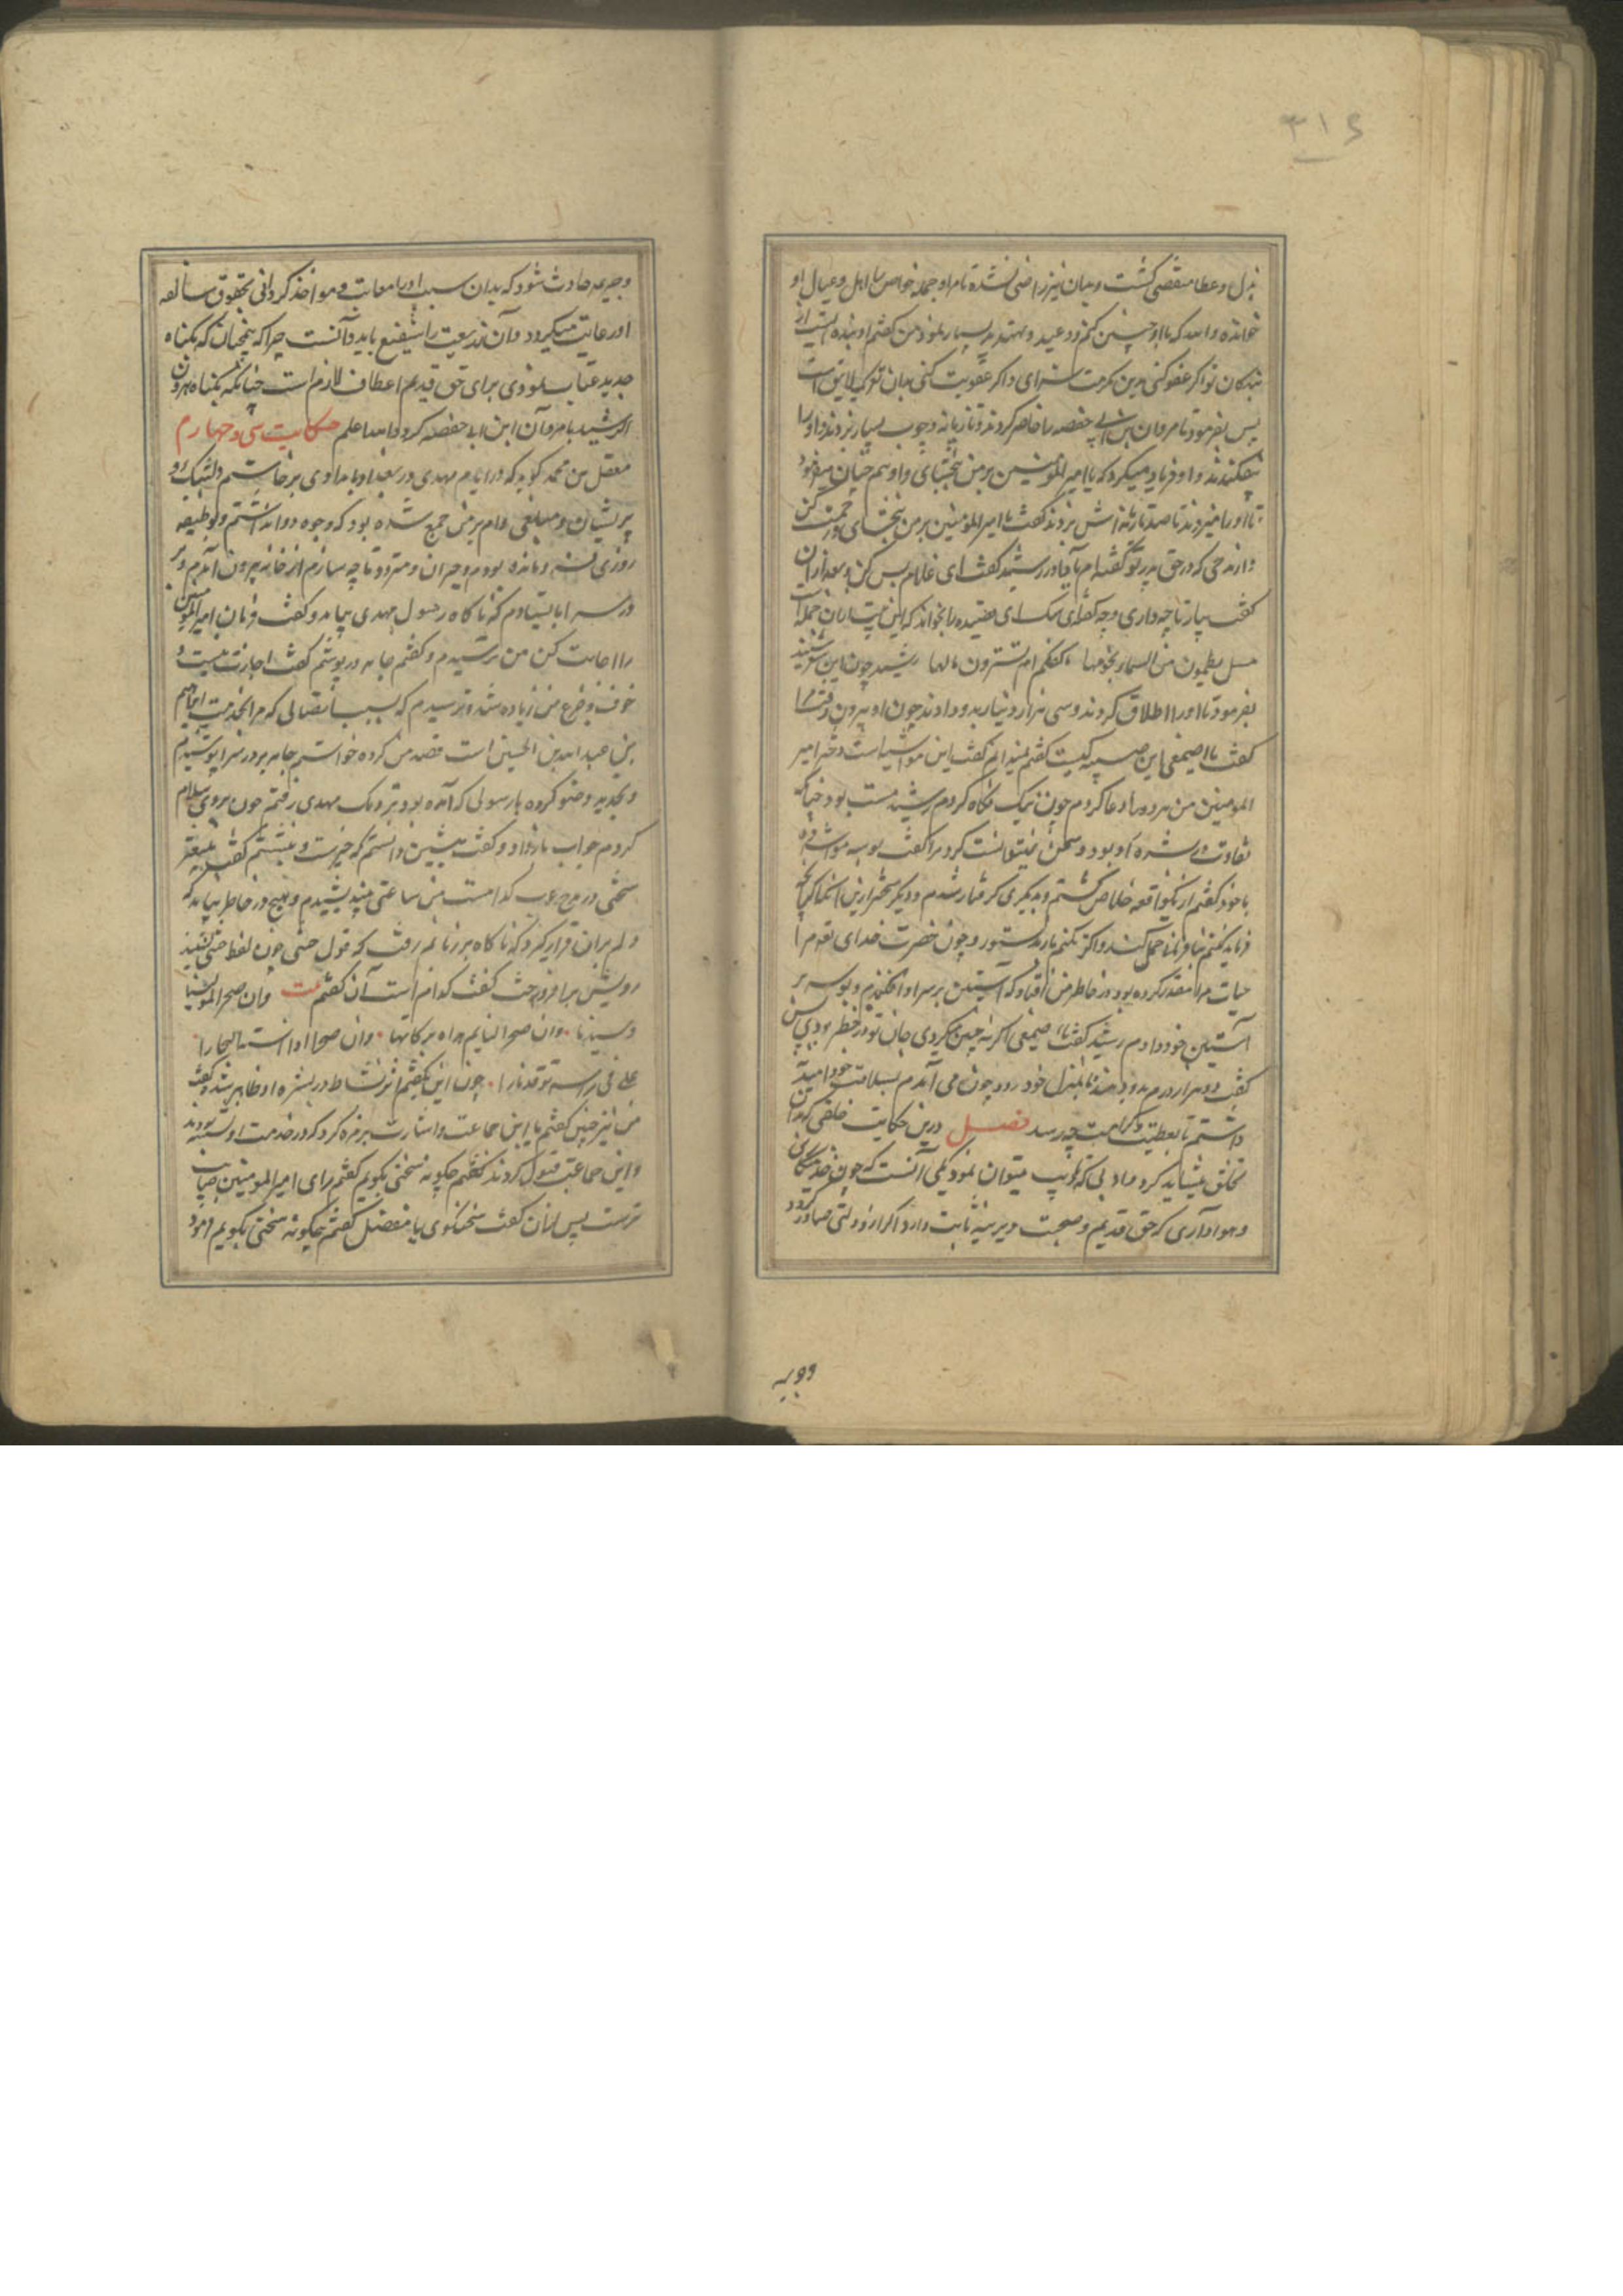 ۳۱۶
بذل و عطا منقضی کشت و بدان نیز راضی نشده تا مرا و جمله خواص با اهل و عیال او
خوانده والله که با او چنین کنم و وعید و تهدید بسیار نمود من کفتم او بنده ایست از
بندکان تو اکر عفو کنی بدین مکرمت سزای و اکر عقوبت کنی بدان
پس بفرمود تا مروان بن ابی حفصه را حاضر کردند و تازیانه و چوب بسیار بزدند و او را
بیفکندند و او فریاد میکرد که یا امیر المؤمنین بر من ببخشای و او هم چنان میفرمود
تا او را میزدند تا صد تازیانه اش بزدند کفت یا امیر المؤمنین بر من ببخشای و رحمت کن
و از مدحی که در حق پدر تو کفته ام یاد آور رشید کفت ای غلام بس کن و بعد از آن
کفت بیار تا چه داری و چه کفته ای سک این قصیده را بخواند که این بیت از آن جمله است
هل یطمسون من السماء نجومها باکفکم ام تسترون هلالها رشید چون این بشنید
بفرمود تا او را اطلاق کردند و سی هزار دینار بدو دادند چون او بیرون رفت مرا
کفت یا اصمعی این صبیه کیست کفتم نمیدانم کفت این مواسیاست دختر امیر
المومنین من هر دو را دعا کردم چون نیک نکاه کردم رشید مست بود چنانکه
تفاوت در بشره او بود و سخن نمیتوانست کرد مرا کفت بوسه مواسیا ده
با خود کفتم از یکی واقعه خلاص کشتم و بدیکری کرفتار شدم و دیکر سختر ازین اکر آنچه
فرماید کنم بنا فرمانی حمل کند و اکر نکنم
حیات مرا مقدر کرده بود در خاطر من افتاد که آستین بر سر او افکندم و بوسه بر
آستین خود دادم رشید کفت یا اصمعی اکر نه چنین میکردی جان تو در خطر بودی پس
کفت دو هزار درم بدو بدهند تا بمنزل خود رود چون می آمدم بسلامت خود امید
داشتم تا بعطیت و کرامت چه رسد فصل درین حکایت خلقی که بدان
تخلق میشاید کرد و ادبی که بدان تهذیب میتوان نمود یکی آنست که چون خدمتکاری
و هواداری که حق قدیم و صحبت دیرینه ثابت دارد اکر از وی زلتی صادر کردد
وجریمه
وجریمه حادث شود که بدان سبب او را معاتب و مواخذ کردانی بحقوق سالفه
او رعایت میکرود و آن ذریعت را شفیع باید دانست چرا که همچنان که بکناه
جدید عتاب نمودی برای حق قدیم اعطاف لازم است چنانکه بکناه هرون
الرشید با مروان ابن ابی حفصه کرد والله اعلم حکایت سی و چهارم
مفضل بن محمد کوید که در ایام مهدی در بغداد بامدادی برخاستم دلتنک و
پریشان و مبلغی وام بر من جمع شده بود که وجوه دوا نداشتم و بوظیفه
روزی تشنه و مانده بودم و حیران و متردد تا چه سازم از خانه بیرون آمدم و بر
در سرا بایستادم که ناکاه رسول مهدی بیامد و کفت فرمان امیر المومنین
را اجابت کن من ترسیدم و کفتم جامه در پوشم کفت اجازت نیست و
خوف و فزع من زیاده شد و ترسیدم که بسبب اتصالی که مرا بخدمت ابراهیم
بن عبدالله بن الحسین است قصد من کرده خواستم جامه بر در سرا پوشیدم
و تجدید وضو کرده با رسولی که آمده بود نزدیک مهدی رفتم چون بروی سلام
کردم جواب باز داد و کفت بنشین دانستم که خیر ست و بنشستم کفت
سخنی در مدح عرب کدامست من ساعتی بیندیشیدم و هیچ در خاطر نیامد که
دلم بران قرار کیرد که ناکاه بر زبانم رفت که قول خنسا چون لفظ خنسا بشنید
رویش برافروخت کفت کدام است آن کفتم بیت وان صخرا لمولینا
وسیدنا وان صخرا
علم فی راسه نار چون این بکفتم اثر نشاط در بشره او ظاهر شد و کفت
من نیز چنین کفتم با این جماعت و اشارت بزمره کرد که در خدمت او نشسته بودند
و این جماعت قبول نکردند کفتم چکونه سخنی بکویم کفتم رای امیر المومنین صایب
ترست پس از آن کفت سخنکوی یا مفضل کفتم چکونه سخنی بکویم فرمود